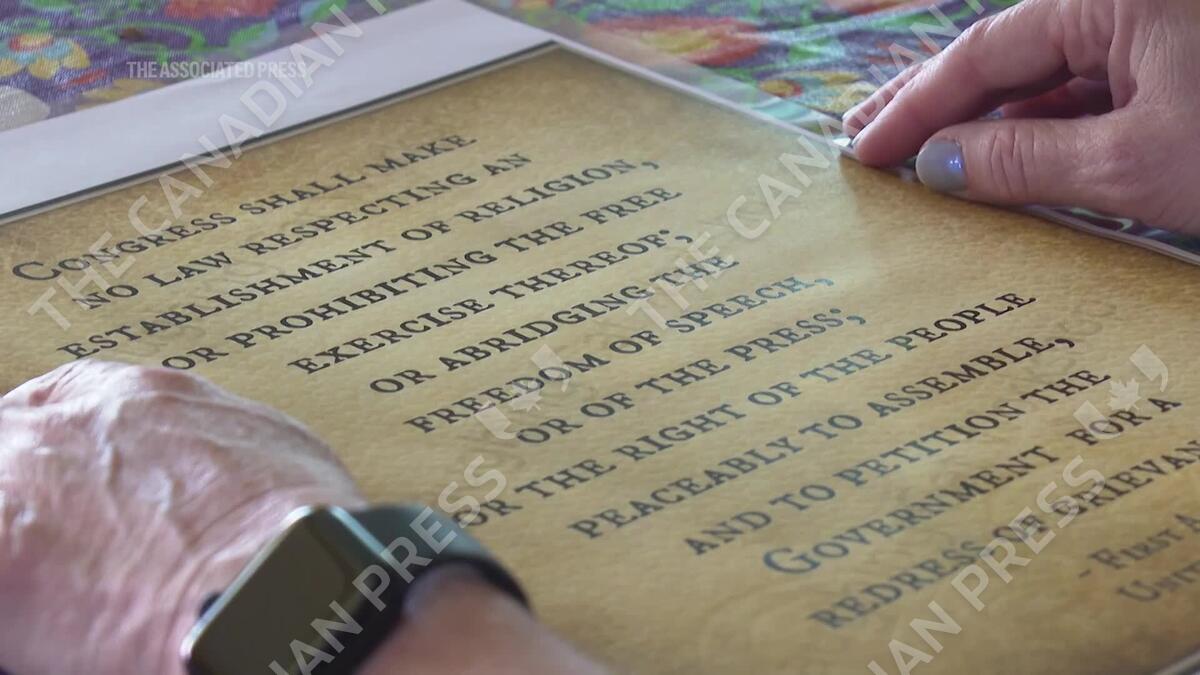 THE ASSOCIATED PRESS
CONGRESS SHALL MAKE
NO LAW RESPECTING AN
ESTABLISHMENT OF RELIGION,
OR PROHIBITING THE FREE
EXERCISE THEREOF;
OR ABRIDGING THE
FREEDOM OF SPEECH,
OR OF THE PRESS;
OR THE RIGHT OF THE PEOPLE
PEACEABLY TO ASSEMBLE,
AND TO PETITION THE
GOVERNMENT FOR A
REDRESS OF GRIEVAN
- FIRST A
UNIT
THE CANADIAN PRESS
THE CANADIAN PRESS
CANADIAN PRESS
CANADIAN PRESS